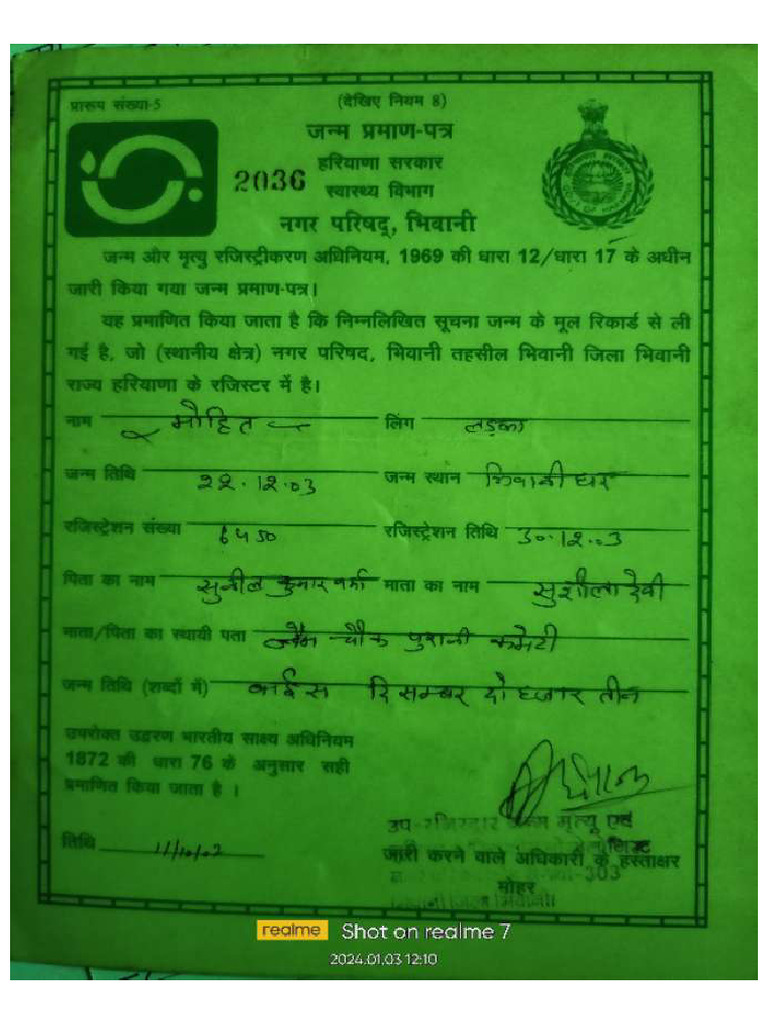 प्रारूप संख्या-5
(देखिए नियम 8)
जन्म प्रमाण-पत्र
हरियाणा सरकार
2036
स्वास्थ्य विभाग
नगर परिषद्, भिवानी
जन्म और मृत्यु रजिस्ट्रीकरण अधिनियम, 1969 की धारा 12/धारा 17 के अधीन
जारी किया गया जन्म प्रमाण-पत्र।
यह प्रमाणित किया जाता है कि निम्नलिखित सूचना जन्म के मूल रिकार्ड से ली
गई है, जो (स्थानीय क्षेत्र) नगर परिषद, भिवानी तहसील भिवानी जिला भिवानी
राज्य हरियाणा के रजिस्टर में है।
नाम मोहित लिंग लड़का
जन्म तिथि 22.12.03 जन्म स्थान भिवानी घर
रजिस्ट्रेशन संख्या 6450 रजिस्ट्रेशन तिथि 30.12.03
पिता का नाम सुनील कुमार वर्मा माता का नाम सुशीला देवी
माता/पिता का स्थायी पता जैन चौक पुरानी कमेटी
जन्म तिथि (शब्दों में) बाईस दिसम्बर दो हजार तीन
उपरोक्त उद्धरण भारतीय साक्ष्य अधिनियम
1872 की धारा 76 के अनुसार सही
प्रमाणित किया जाता है ।
उप-रजिस्ट्रार जन्म मृत्यु एवं
तिथि
जारी करने वाले अधिकारी के हस्ताक्षर
मोहर
realme Shot on realme 7
2024.01.03 12:10